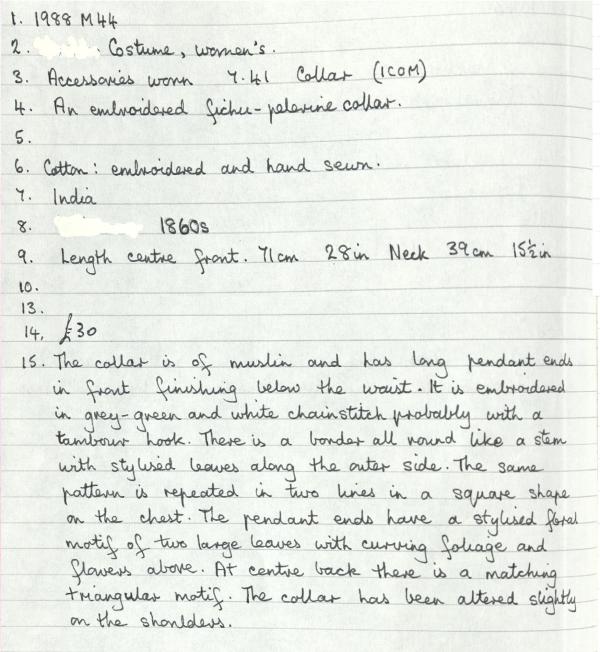 1. 1988 M44
2. Costume, women's.
3. Accessories worn 7.41 Collar (ICOM)
4. An embroidered fichu-pelerine collar.
5.
6. Cotton: embroidered and hand sewn.
7. India
8. 1860s
9. Length centre front. 71cm 28in Neck 39cm 15½in
10.
13.
14. £30
15. The collar is of muslin and has long pendant ends
in front finishing below the waist. It is embroidered
in grey-green and white chainstitch probably with a
tambour hook. There is a border all round like a stem
with stylised leaves along the outer side. The same
pattern is repeated in two lines in a square shape
on the chest. The pendant ends have a stylised floral
motif of two large leaves with curving foliage and
flowers above. At centre back there is a matching
triangular motif. The collar has been altered slightly
on the shoulders.